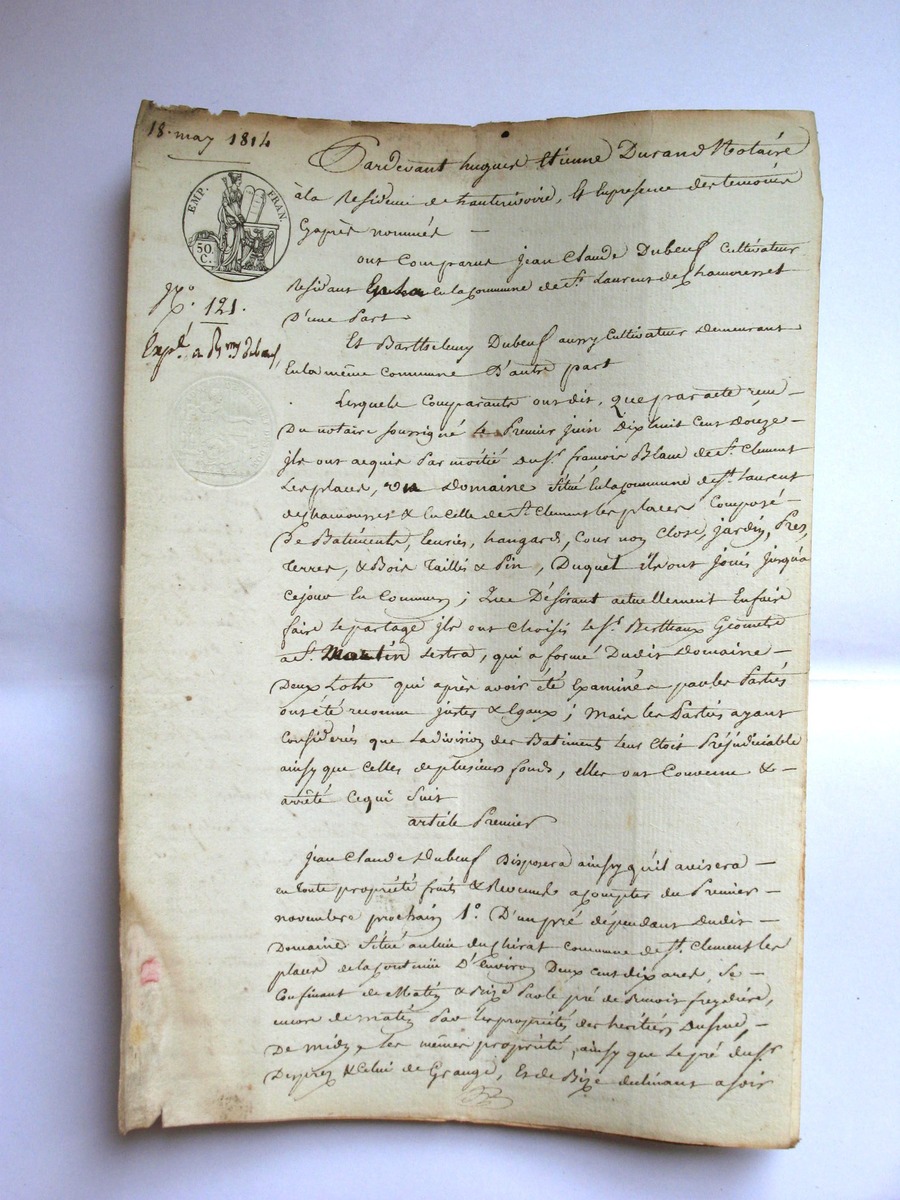 18 may 1814
EMP. FRAN.
50 C.
N.º 121.
Expé. a
Pardevant hugues Etienne Durand Notaire
à la Residence de hauterivoire, Et En presence des temoins
Cyaprès nommés —
ont Comparus Jean Claude Dubeuf Cultivateur
Residant En la Commune de St. Laurent de Chamousset
D'une Part.
Et Barthelemy Dubeuf aussy Cultivateur demeurant
En la même Commune D'autre part
Lesquels Comparants ont dit, que par acte reçu —
Du notaire soussigné Le Premier juin Dix huit Cent Douze —
ils ont acquis Par moitié Du Sr. francois Blanc de St. Clement
Les places, un Domaine Situé En la Commune de St. Laurent
de Chamousset & En Celle de St. Clement les places Composé —
De Batiments, Ecuries, hangards, Cour non Close, jardin, Prez,
Terres, & Bois Taillis & Pin, Duquel ils ont joui jusqu'à
Ce jour En Commun; Que Désirant actuellement En faire
faire Le partage ils ont choisis Le Sr. Berthaux Géometre
a St. Martin Lestra, qui a formé Dudit Domaine —
Deux Lots qui après avoir été Examinés par les Parties
ont été reconnu justes & Egaux; Mais les Parties ayant
Considerés que La division des Batiments Leur Etoit Préjudiciable
ainsy que Celles de plusieurs fonds, elles ont Convenu & —
arrêté Ce qui Suit
article Premier
Jean Claude Dubeuf Disposera ainsy qu'il avisera —
en toute propriété fruits & Revenus a Compter du Premier —
novembre prochain 1.º D'un pré dépendant Dudit —
Domaine Situé au lieu du Chirat Commune de St. Clement les
places de la Contenüe D'Environ Deux cent dix ares, Se —
Confinant de Matin & Bize Par le pré de Benoit
encore de matin Par les propriétés des heritiers —
De midy, les mêmes propriété, ainsy que Le pré du Sr.
Desprez & Celui de Grange, Et de Bize declinant a soir